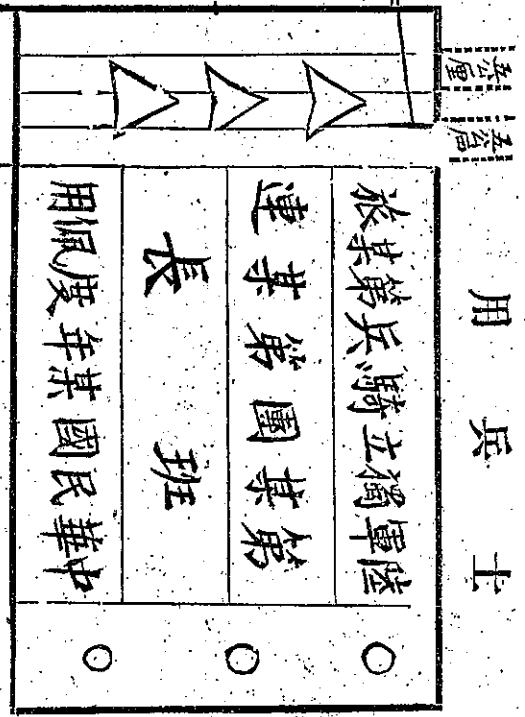 士兵用
五公厘
五公厘
陸軍獨立騎兵第某旅
第某團第某連
班長
中華民國某年度佩用